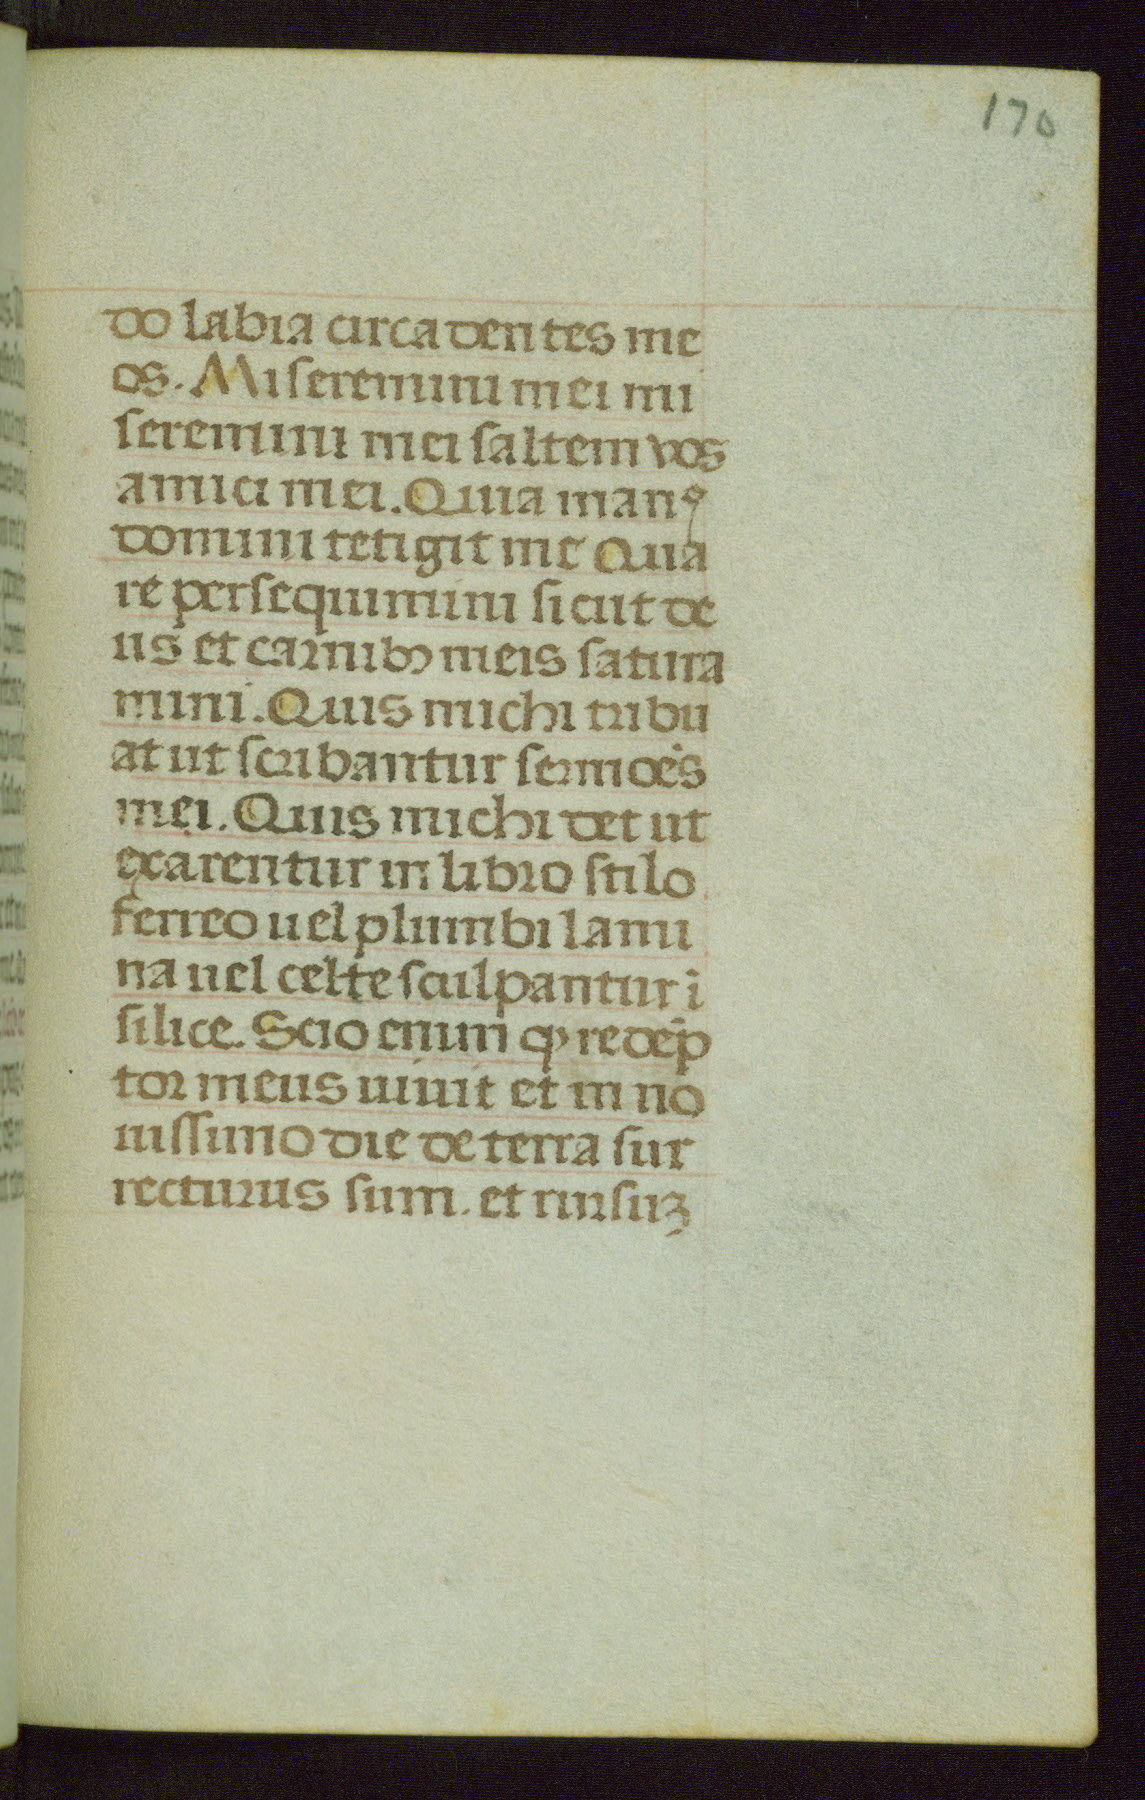 170
do labia circa dentes me
os. Miseremini mei mi
seremini mei saltem vos
amici mei. Quia manꝰ
domini tetigit me Qua
re persequimini sicut de
us et carnibꝫ meis satura
mini. Quis michi tribu
at ut scribantur sermōes
mei. Quis michi det ut
exarentur in libro stilo
ferreo uel plumbi lami
na uel celte sculpantur i
silice. Scio enim qꝫ redēp
tor meus uiuit et in no
uissimo die de terra sur
recturus sum. et rursuꝫ